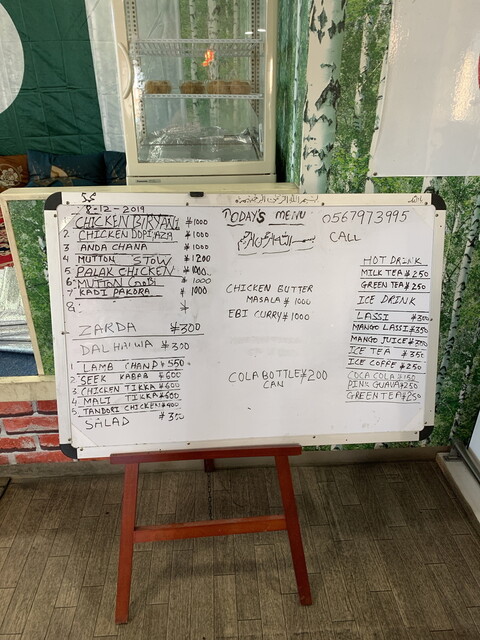 8-12-2019
TODAY'S MENU
0567973995
CALL
CHICKEN BIRYANI ¥1000
2 CHICKEN DOPIAZA ¥1000
3 ANDA CHANA ¥1000
4 MUTTON STOW ¥1200
5 PALAK CHICKEN ¥1000
6 MUTTON GOBI ¥1000
7 KADI PAKORA ¥1000
8
ZARDA ¥300
DAL HALWA ¥300
1 LAMB CHAND ¥550
2 SEEK KABAB ¥600
3 CHICKEN TIKKA ¥600
4 MALI TIKKA ¥600
5 TANDORI CHICKEN ¥400
SALAD ¥350
CHICKEN BUTTER
MASALA ¥1000
EBI CURRY ¥1000
COLA BOTTLE ¥200
CAN
HOT DRINK
MILK TEA ¥250
GREEN TEA ¥250
ICE DRINK
LASSI ¥300
MANGO LASSI ¥350
MANGO JUICE ¥350
ICE TEA ¥350
ICE COFFE ¥250
COCA COLA ¥150
PINK GUAVA ¥250
GREEN TEA ¥250